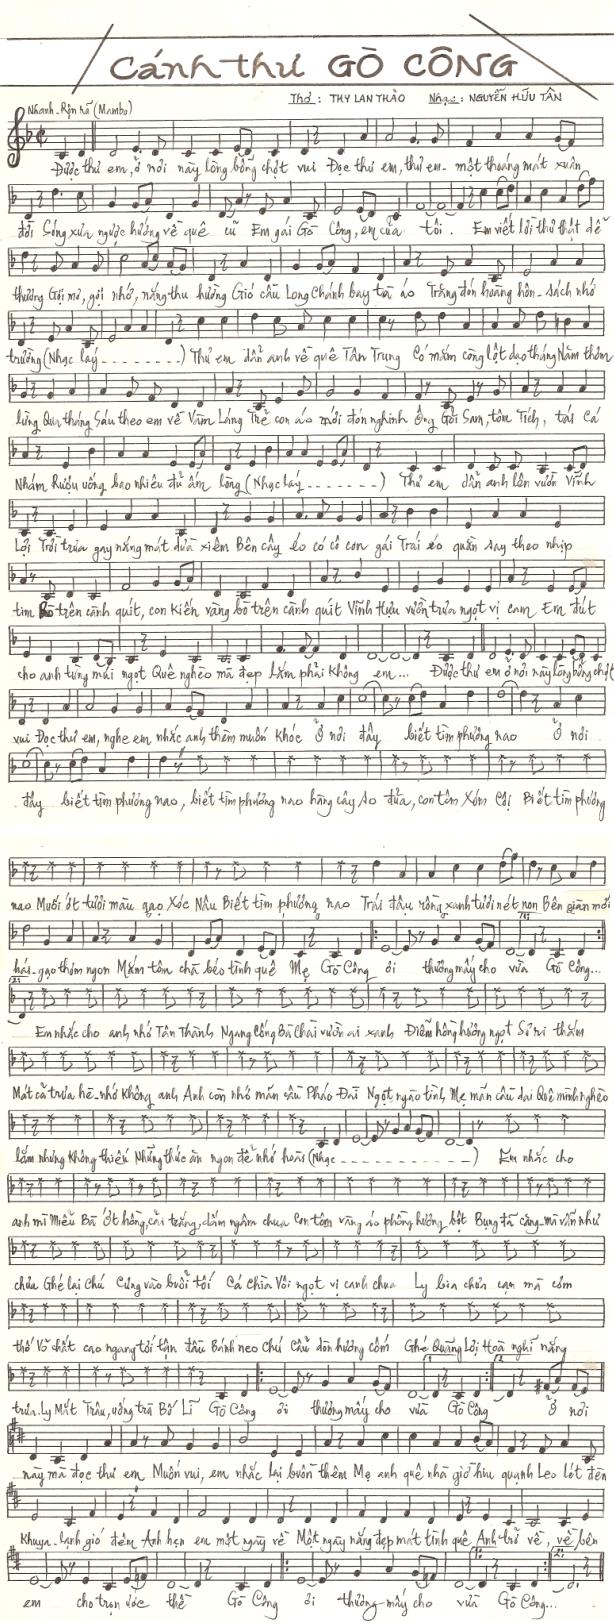 Cánh thư GÒ CÔNG
Thơ : THY LAN THẢO Nhạc : NGUYỄN HỮU TÂN
Nhanh - Rộn rã (Mambo)
Được thư em, ở nơi này lòng bỗng chợt vui Đọc thư em, thư em - một thoáng mát xuân
đời Sóng xưa ngược hướng về quê cũ Em gái Gò Công, em của tôi . Em viết lời thư thật dễ
thương Gợi mơ, gợi nhớ, nắng thu hường Gió cầu Long Chánh bay tà áo Trắng đón hoàng hôn - sách nhớ
trường (Nhạc láy - - - - - - - -) Thư em dẫn anh về quê Tân Trung Có mắm còng lột dạo tháng Năm thơm
lừng Qua tháng Sáu theo em về Vàm Láng Trẻ con áo mới đón nghinh Ông Gỏi Sam, tôm Tích, tái Cá
Nhám Rượu uống bao nhiêu đủ ấm lòng (Nhạc láy - - - - - - -) Thư em dẫn anh lên vườn Vĩnh
Lợi Trời trưa gay nắng mát dừa xiêm Bên cây éo có cô con gái Trái éo quấn say theo nhịp
tim Bò trên cành quít, con kiến vàng bò trên cành quít Vĩnh Hựu vườn trưa ngọt vị cam Em đút
cho anh từng múi ngọt Quê nghèo mà đẹp lắm phải không em... Được thư em ở nơi này lòng bỗng chợt
vui Đọc thư em, nghe em nhắc anh thèm muốn khóc Ở nơi đây biết tìm phương nao Ở nơi
đây biết tìm phương nao, biết tìm phương nao hàng cây so đũa, con tôm Xóm Cội Biết tìm phương
nao Muối ớt tươi màu gạo Xóc Nâu Biết tìm phương nao Trái đậu rồng xanh tươi nét non Bên giàn mới
hái - gạo thơm ngon Mắm tôm chà béo tình quê Mẹ Gò Công ơi thương mấy cho vừa Gò Công...
Em nhắc cho anh nhớ Tân Thành Ngang Cống Bà Chài vườn ai xanh Điểm hồng hương ngọt Sơ ri thắm
Mát cả trưa hè - nhớ không anh Anh còn nhớ mãn cầu Pháo Đài Ngọt ngào tình Mẹ mãn cầu dai Quê mình nghèo
lắm nhưng không thiếu Những thức ăn ngon để nhớ hoài (Nhạc - - - - - - - - - - - - - - -) Em nhắc cho
anh mì Miễu Bà Ớt hồng, cải trắng, dấm ngâm chua Con tôm vàng áo phồng hương bột Bụng đã căng - mà vẫn như
chưa Ghé lại Chú Cung vào buổi tối Cá Chìa Vôi ngọt vị canh chua Ly bia chưa cạn mà cơm
thố Vỏ chất cao ngang tới tận đầu Bánh neo Chú Cẩu dòn hương cốm Ghé Quảng Lợi Hoà nghỉ nắng
trưa. Ly Mắt Trâu, uống trà Bố Lĩ Gò Công ơi thương mấy cho vừa Gò Công Ở nơi
này mà đọc thư em Muốn vui, em nhắc lại buồn thêm Mẹ anh quê nhà giờ hiu quạnh Leo lét đèn
khuya - lạnh gió đêm Anh hẹn em một ngày về Một ngày nắng đẹp mát tình quê Anh trở về, về bên
em cho trọn ước thề Gò Công ơi thương - mấy cho vừa Gò Công...